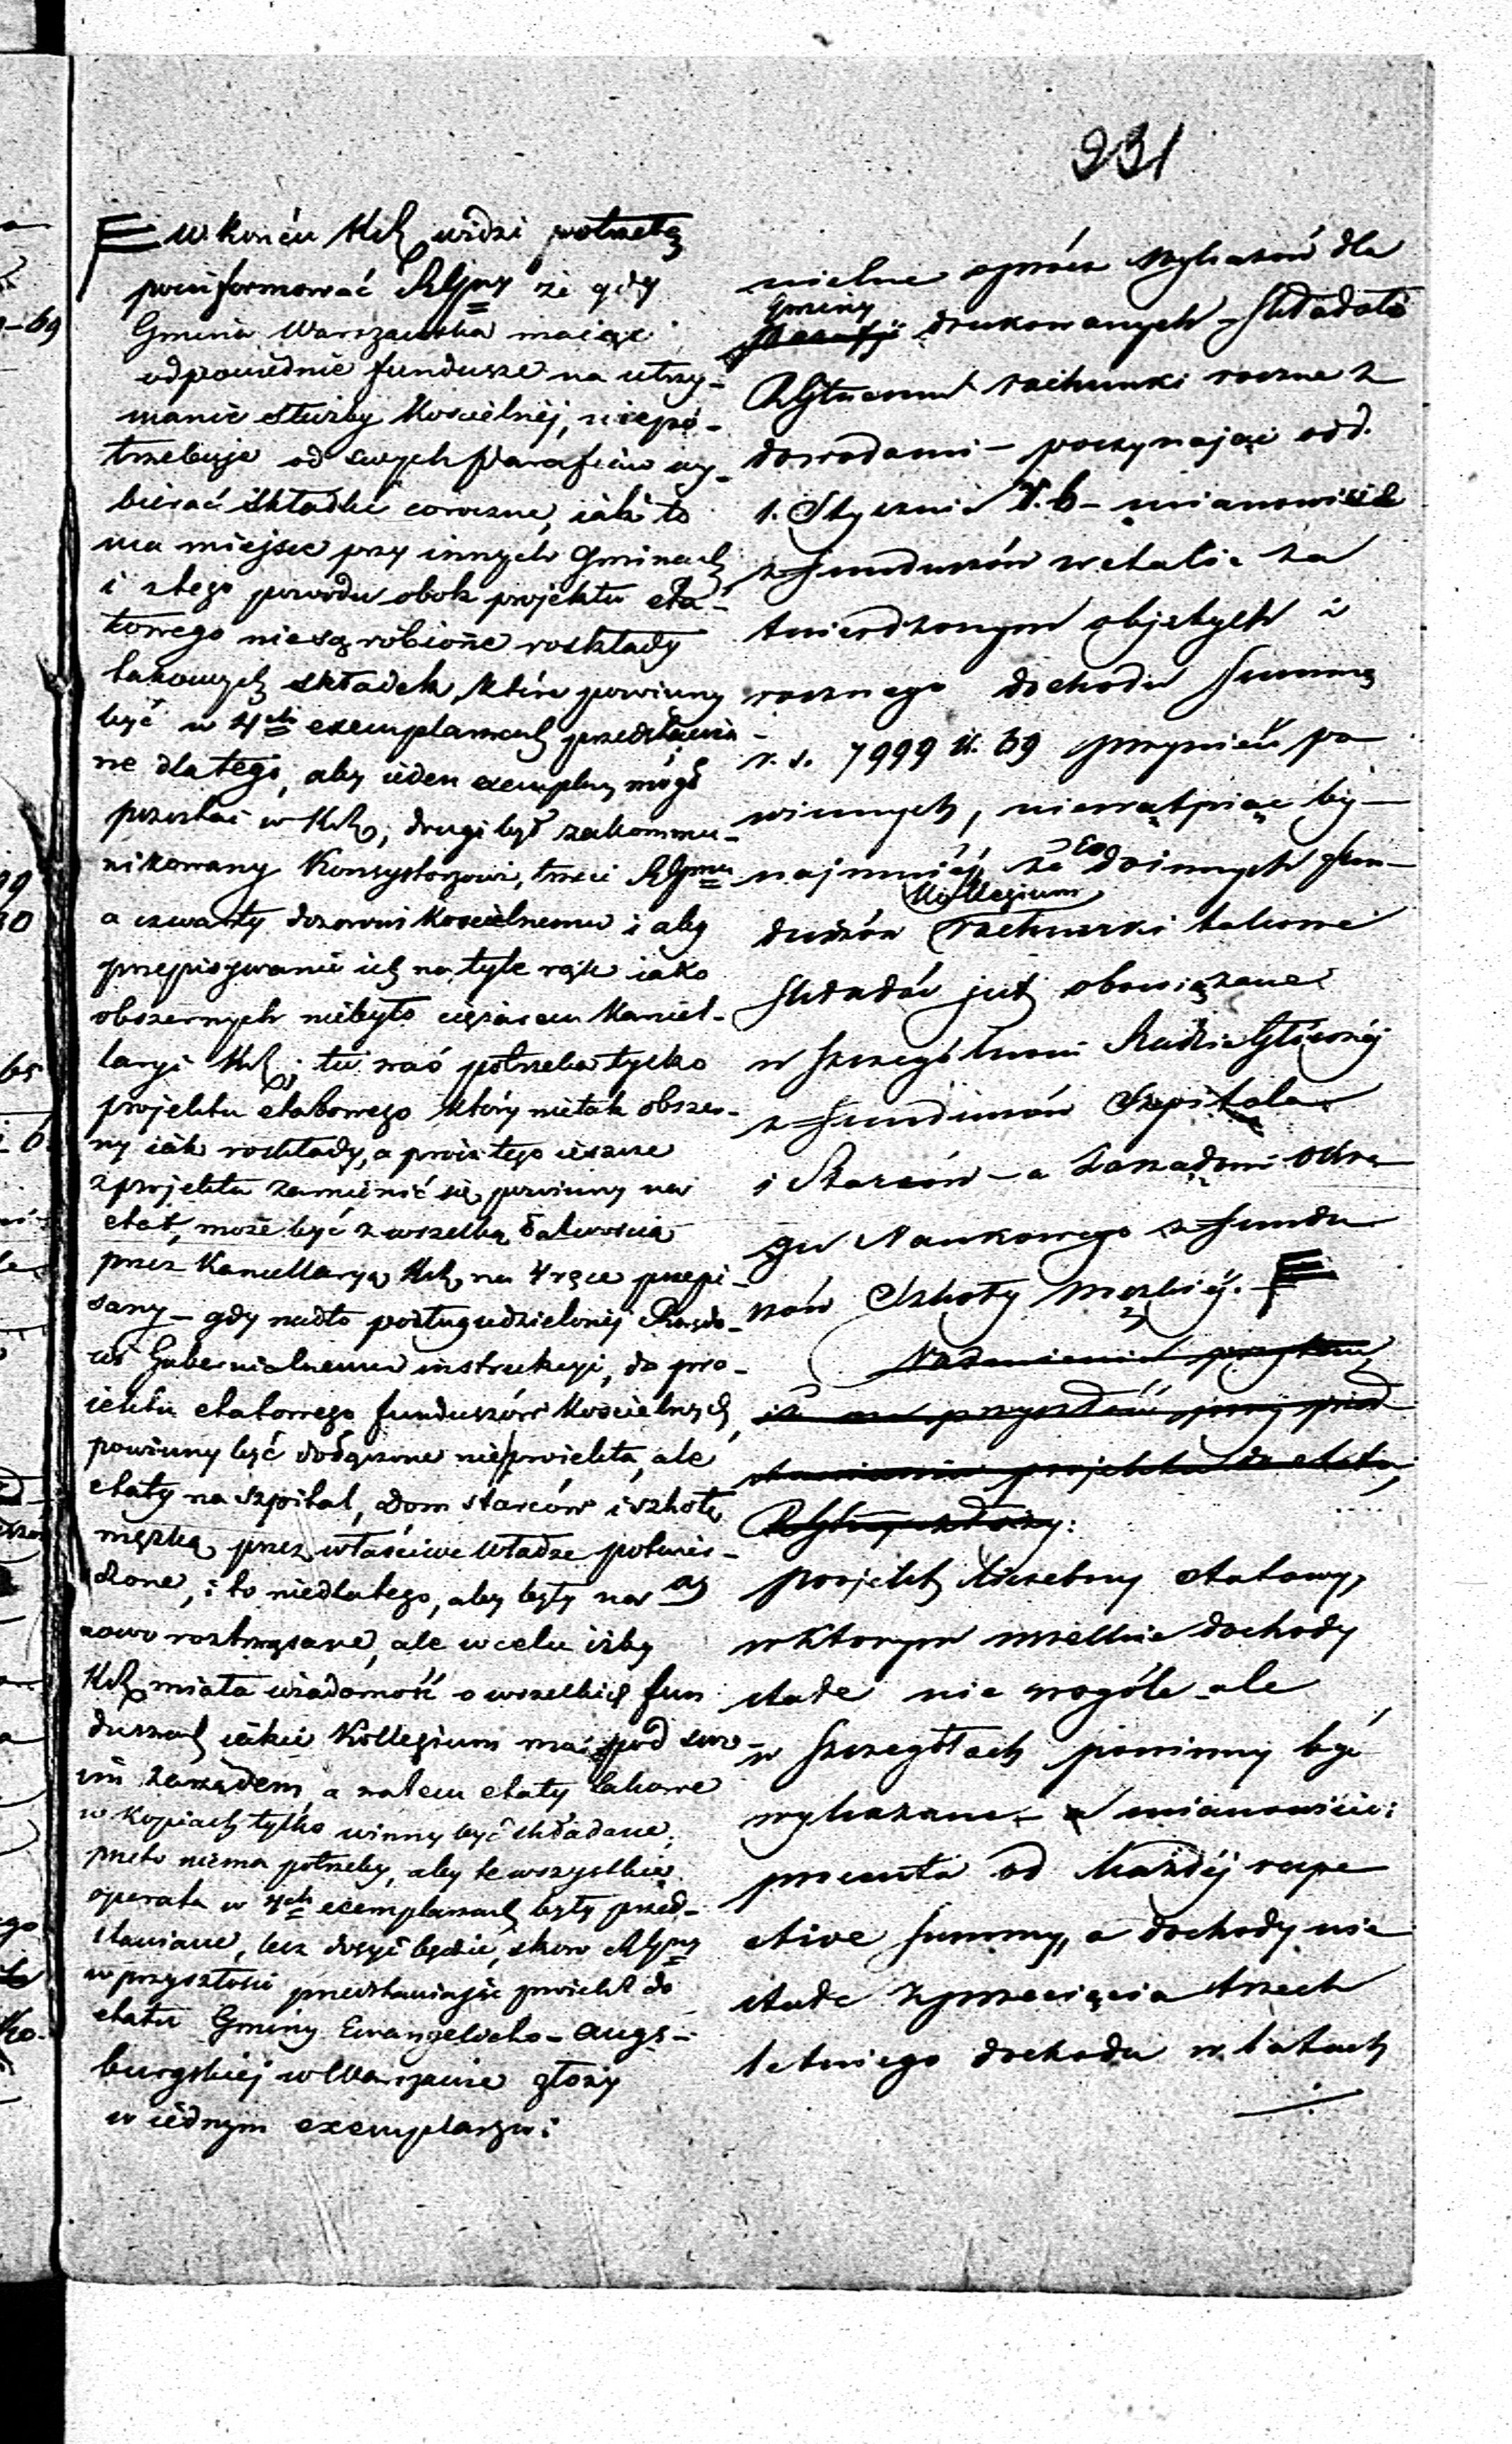 231
w końcu KRz widzi potrzebę
poinformować Rljny że gdy
Gmina Warszawska maiąc
odpowiednie fundusze na utrzy-
manie służby Kościelnéj, niepo-
trzebuje od swych parafian wy-
bierać składki coroczne, iak to
ma miejsce przy innych Gminach
i z tego powodu obok projektu eta-
towego niesą robione rozkłady
takowych składek, które powinny
być w 4ch exemplarzach przedstawia-
ne dla tego, aby ieden exemplarz mógł
pozostać w KRz, drugi był zakommu-
nikowany Konsystorzowi, trzeci Rljnu
a czwarty dozorowi Kościelnemu i aby
przepisywanie ich na tyle rąk iako
obszernych niebyło ciężarem Kancel-
laryi KRz; tu zaś potrzeba tylko
projektu etatowego który nietak obszer-
ny iak rozkłady, a prócz tego ieszcze
z projektu zamienić się powinny na
etat, może być z wszelką łatwością
przez Kancellaryą KRz na 4 ręce przepi-
sany – gdy nadto podług udzielonéj Rządo-
wi Gubernialnemu instrukcyi, do pro-
iektu etatowego funduszów Kościelnych,
powinny być dołączone nie proiekta, ale
etaty na szpital, Dom starców i szkołę
męzką przez właściwe Władze potwier-
dzone, i to niedlatego, aby były na
nowo roztrząsane, ale w celu iżby
KRz miała wiadomość o wszelkich fun
duszach iakie Kollegium ma pod swo-
im zarządem, a zatem etaty takowe
w kopiach tylko winny być składane,
przeto niema potrzeby, aby te wszystkie
operata w 4ch exemplarzach były przed-
stawiane, lecz dosyć będzie, skoro Rljny
w przyszłości przedstawiając proiekt do
etatu Gminy Ewangelicko-Augs-
burgskiej w Warszawie złoży
w iednym exemplarzu:
mielne oprócz wykazów dla
Gminy
drukowanych – składało
Rljtuemu rachunki roczne z
dowodami – poczynając od d.
1. Stycznia r. b – mianowicie
z funduszów w etacie za
twierdzonym objętych i
rocznego dochodu summę
r. s. 7999 k. 69 przynieść po
winnych, niewątpiąc by-
najmniéj, że co do innych fun-
Kollegium
duszów rachunki takowe
składać już obowiązane
w szczególności Radzie Głównéj
z funduszów Szpitala
i Starców – a Zarządowi Okrę
gu Naukowego z fundu
szów Szkoły męzkiéj.
Nadmienia przytem,
iż na przyszłość, przy przed
stawianiu projektu do etatu,
projekt liczebny etatowy,
w którym wszelkie dochody
stałe nie wogóle ale
w szczegółach powinny być
wykazane – a mianowicie:
procenta od każdéj respe
ctive summy, a dochody nie
stałe z przecięcia trzech
letniego dochodu w latach